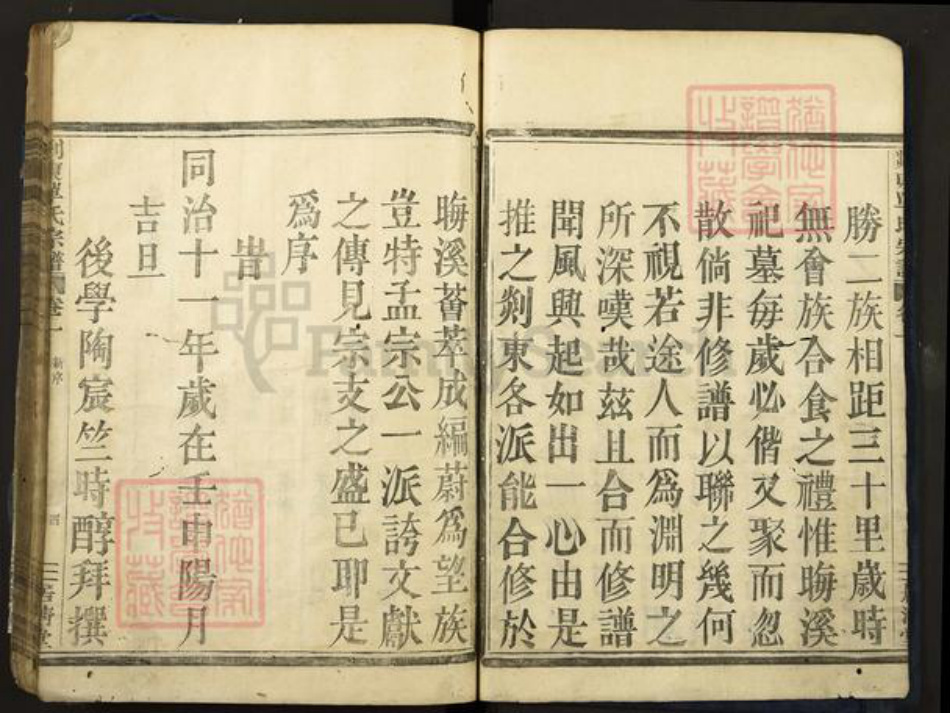 勝二族相距三十里歲時
無會族合食之禮惟晦溪
祀墓每歲必偕又聚而忽
散倘非修譜以聯之幾何
不視若途人而為淵明之
所深嘆哉茲且合而修譜
聞風興起如出一心由是
推之剡東各派能合修於
晦溪薈萃成編蔚為望族
豈特孟宗公一派誇文獻
之傳見宗支之盛已耶是
為序
旹
同治十一年歲在壬申陽月
吉旦
後學陶宸竺時醇拜撰
氏宗譜 卷一 新序 四
FamilySearch